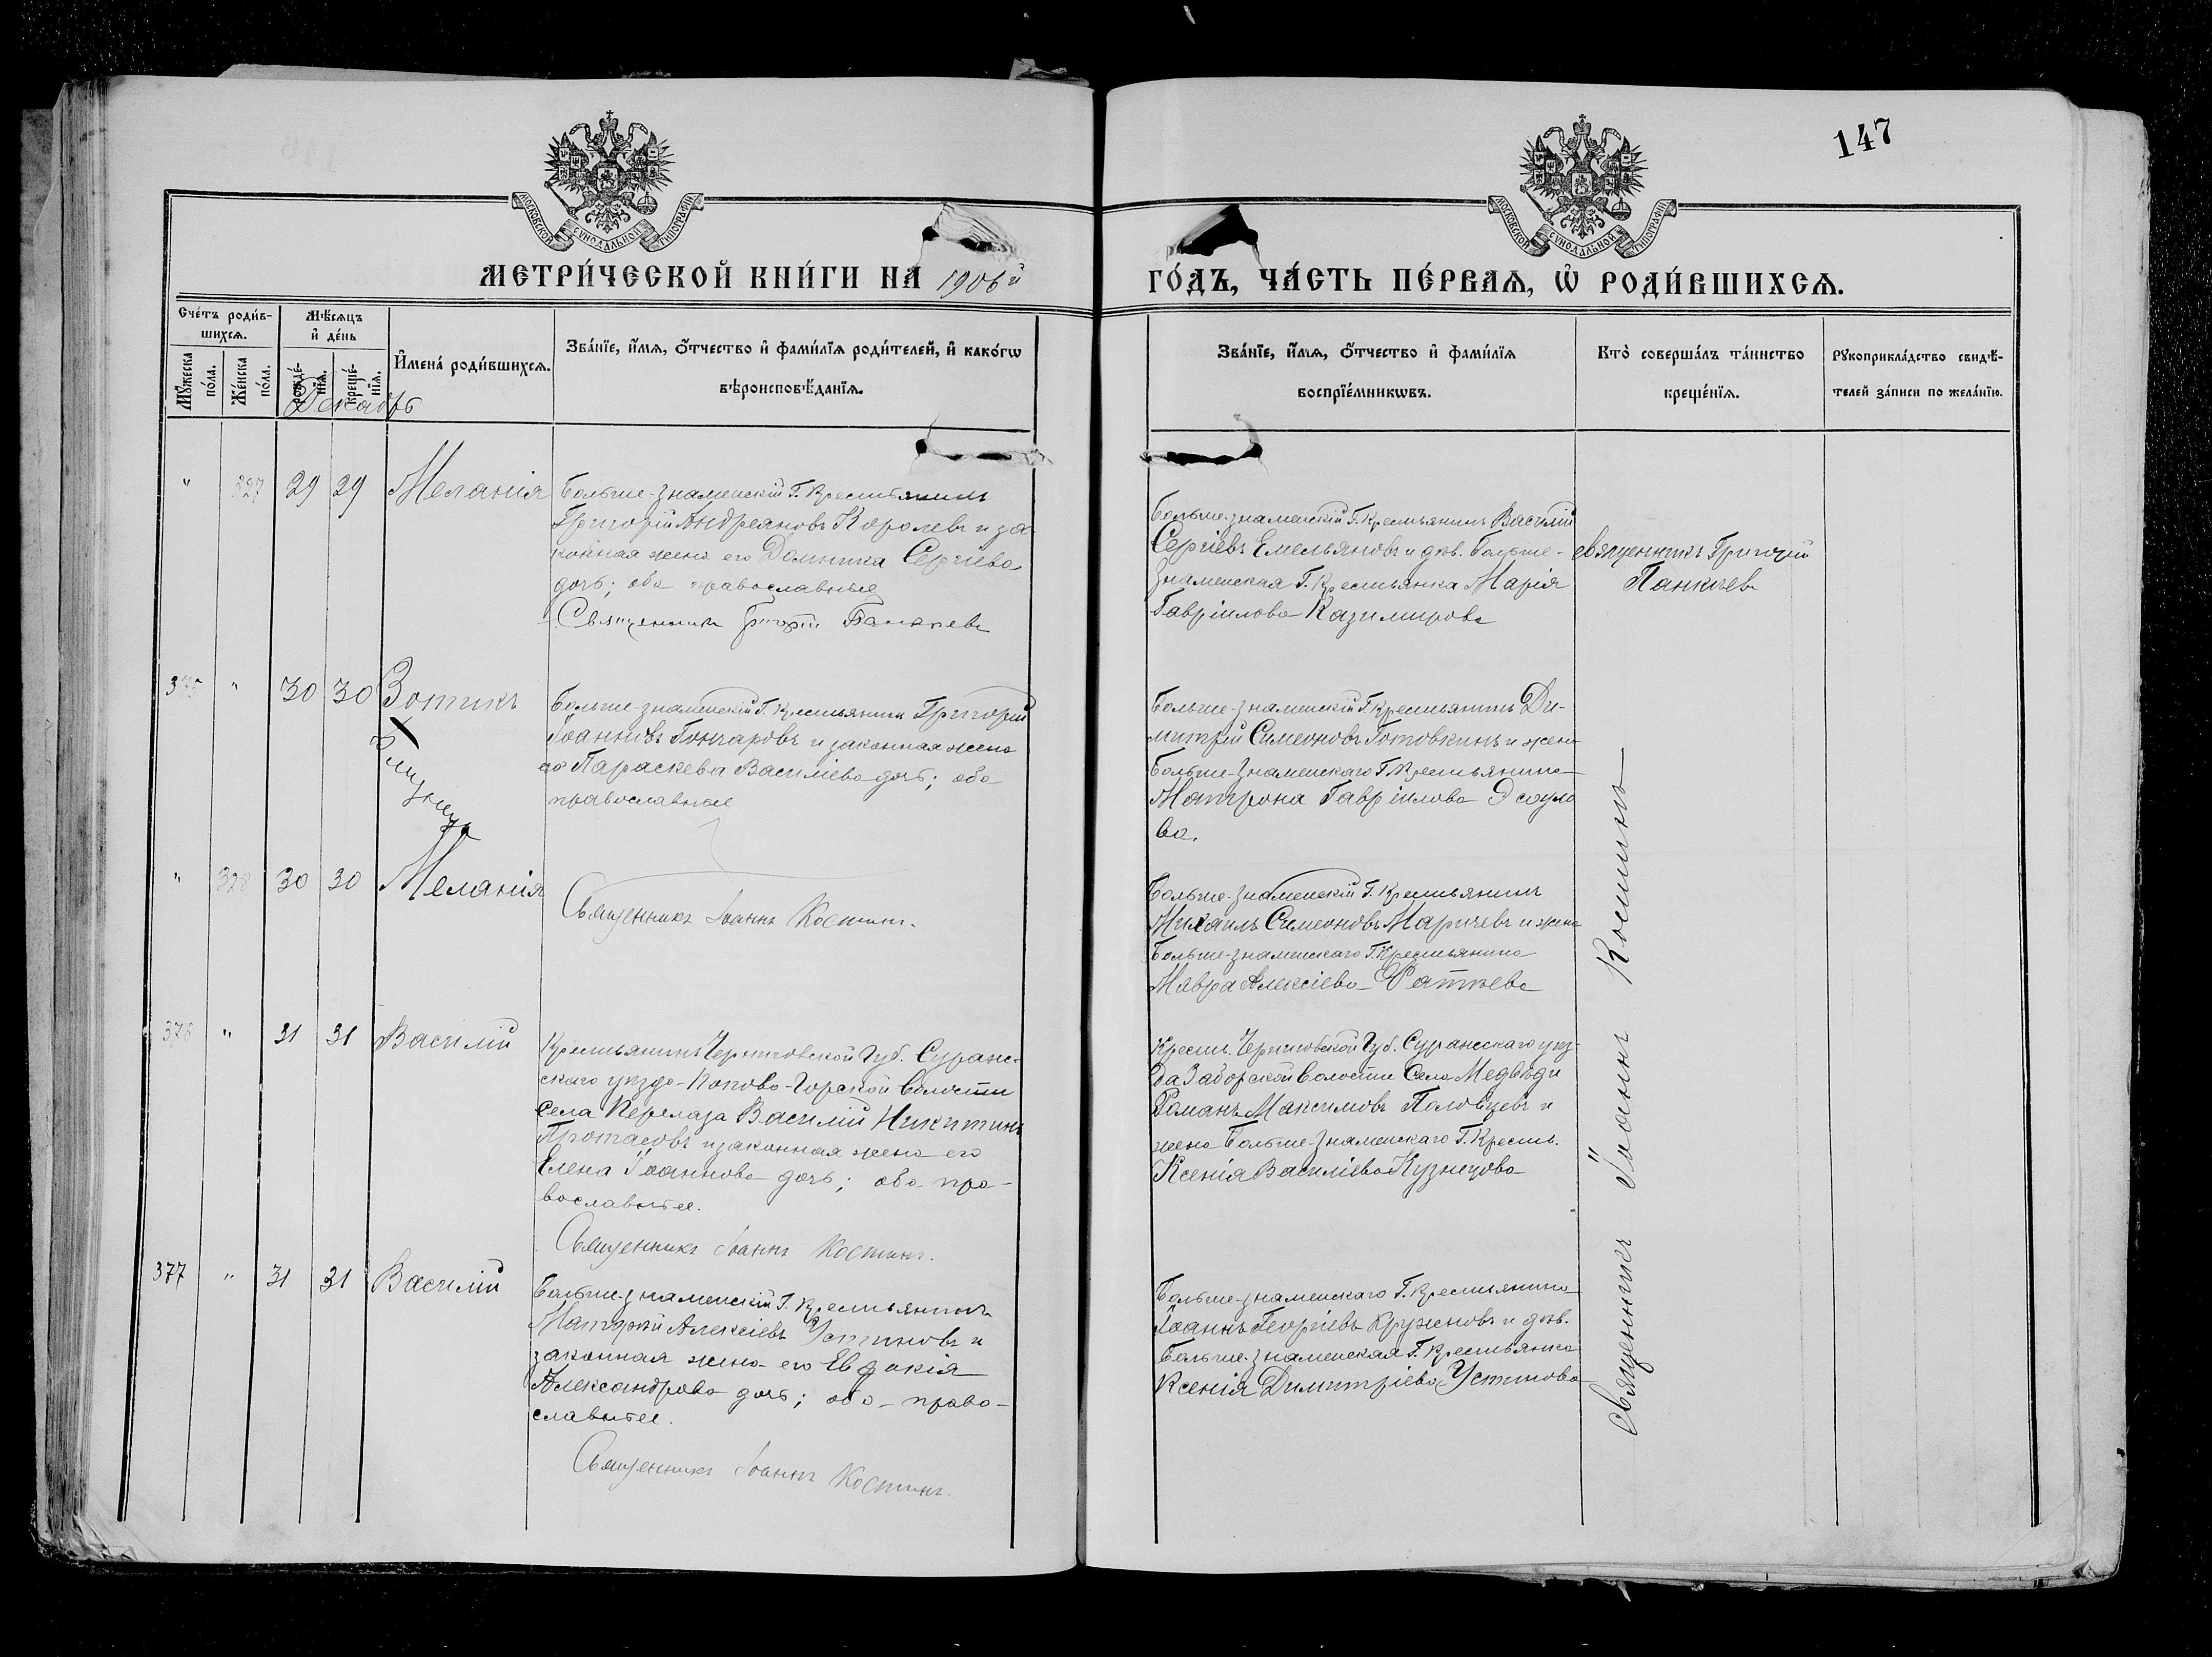 147
МОСКОВСКОЙ СѴНОДАЛЬНОЙ ТИПОГРАФІИ
МОСКОВСКОЙ СѴНОДАЛЬНОЙ ТИПОГРАФІИ
МЕТРИ́ЧЕСКОЙ КНИ́ГИ НА 1906й ГО́ДЪ, ЧА́СТЬ ПЕ́РВАѦ, Ѡ҆ РОДИ́ВШИХСѦ.
Сче́тъ роди́в-
шихсѧ.
Мꙋ́жеска по́ла.
Же́нска по́ла.
Мѣ́сѧцъ
и҆ де́нь
рожде́-
нїѧ.
креще́-
нїѧ.
И҆мена̀ роди́вшихсѧ.
Зва́нїе, и҆́мѧ, ѻ҆́тчество и҆ фами́лїѧ роди́телей, и҆ како́гѡ
вѣроисповѣ́данїѧ.
Зва́нїе, и҆́мѧ, ѻ҆́тчество и҆ фами́лїѧ
воспрїе́мникѡвъ.
Кто̀ соверша́лъ та́инство
креще́нїѧ.
Рꙋкоприкла́дство свидѣ́-
телей за́писи по жела́нїю.
Декабрь
" 327 29 29 Меланія
Больше-Знаменскій Г. Крестьянинъ
Григорій Андреяновъ Королевъ и за
конная жена его Домника Сергіева
дочь; оба православные
Священникъ Григорій Панкеев
Больше-Знаменскій Г. Крестьянинъ Василій
Сергіевъ Емельяновъ и дѣв. Больше-
Знаменская Г. Крестьянка Марія
Гавріилова Казимирова
священникъ Григорій
Панкеев
375 " 30 30 Зотикъ
Близнецы
Больше-Знаменскій Г. Крестьянинъ Григорій
Іоанновъ Гончаровъ и законная жена
его Параскева Василіева дочь; оба
православные
Больше-Знаменскій Г. Крестьянинъ Ди-
митрій Симеоновъ Готовкинъ и жена
Больше-Знаменскаго Г. Крестьянина
Матрона Гавріилова Эсауло
ва.
" 328 30 30 Меланія
Священникъ Іоаннъ Костинъ.
Больше-Знаменскій Г. Крестьянинъ
Михаилъ Симеоновъ Маричевъ и жена
Больше-Знаменскаго Г. Крестьянина
Мавра Алексіева
376 " 31 31 Василій
Крестьянинъ Черниговской Губ. Сураж-
скаго уѣзда Попово-Горской волости
Села Перелаза Василій Никитинъ
Протасовъ и законная жена его
Елена Іоаннова дочь; оба пра-
вославные.
Священникъ Іоаннъ Костинъ.
Крест. Черниговской Губ. Суражскаго уѣз-
да Заборской волости Села Медвѣди
Романъ Максимовъ Половцевъ и
жена Больше-Знаменскаго Г. Крест.
Ксенія Василіева Кузнецова
377 " 31 31 Василій
Больше-Знаменскій Г. Крестьянинъ
Матфей Алексіевъ Устиновъ и
законная жена его Евдокія
Александрова дочь; оба право-
славные.
Священникъ Іоаннъ Костинъ.
Больше-Знаменскаго Г. Крестьянина
Іоаннъ Георгіевъ Круженовъ и дѣв.
Больше-Знаменская Г. Крестьянка
Ксенія Димитріева Устинова
священникъ Іоаннъ Костинъ